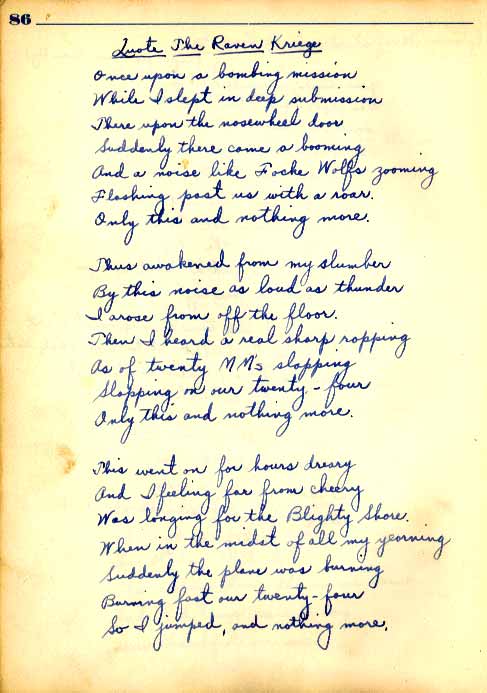 86
Quote The Raven Kriege
Once upon a bombing mission
While I slept in deep submission
There upon the nosewheel door
Suddenly there came a booming
And a noise like Focke Wolfs zooming
Flashing past us with a roar.
Only this and nothing more.
Thus awakened from my slumber
By this noise as loud as thunder
I arose from off the floor.
Then I heard a real sharp rapping
As of twenty MM's slapping
Slapping on our twenty-four
Only this and nothing more.
This went on for hours dreary
And I feeling far from cheery
Was longing for the Blighty Shore.
When in the midst of all my yearning
Suddenly the plane was burning
Burning fast our twenty-four
So I jumped, and nothing more.